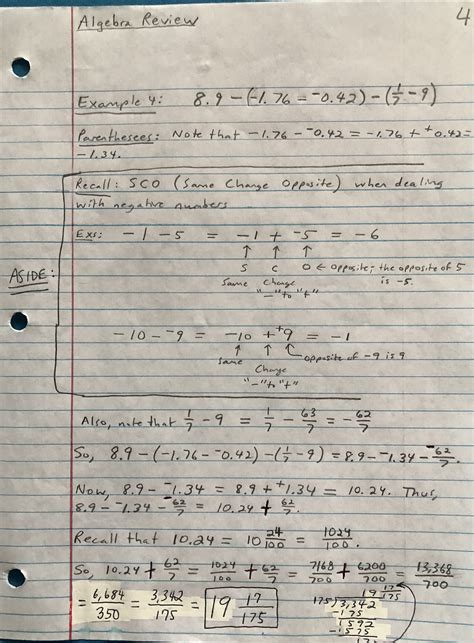 Algebra Review
4
Example 4: 8.9 - (-1.76 = ⁻0.42) - (1/7 - 9)
Parentheses: Note that -1.76 - ⁻0.42 = -1.76 + ⁺0.42 =
-1.34.
Recall: SCO (Same Change Opposite) when dealing
with negative numbers
Exs: -1 - 5 = -1 + -5 = -6
↑ ↑ ↑
S C O ← Opposite; the opposite of 5
is -5.
Same Change
"-" to "+"
ASIDE:
-10 - ⁻9 = -10 + ⁺9 = -1
↑ ↑ ↖ opposite of -9 is 9
Same Change
"-" to "+"
Also, note that 1/7 - 9 = 1/7 - 63/7 = -62/7
So, 8.9 - (-1.76 - ⁻0.42) - (1/7 - 9) = 8.9 - ⁻1.34 - ⁻62/7.
Now, 8.9 - ⁻1.34 = 8.9 + ⁺1.34 = 10.24. Thus,
8.9 - ⁻1.34 - ⁻62/7 = 10.24 + 62/7.
Recall that 10.24 = 10 24/100 = 1024/100.
So, 10.24 + 62/7 = 1024/100 + 62/7 = 7168/700 + 6200/700 = 13,368/700
= 6,684/350 = 3,342/175 = 19 17/175
19 17/175
175)3,342
-175
1592
-1575
17